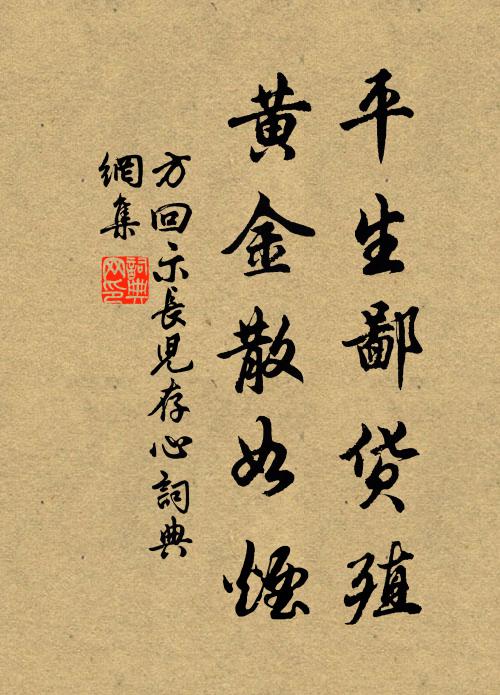 平生鄙货殖
黄金散如煙
方回示長児存心詞典
網集
詞典
网印